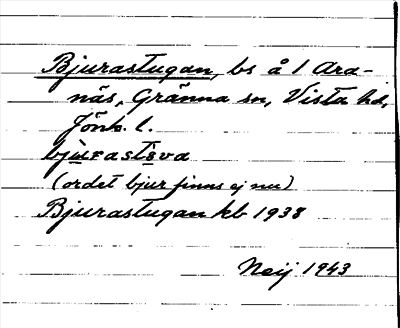 Bjurastugan, bs å 1 Ara-
näs, Gränna sn, Vista hd,
Jönk. l.
bjùrastova
(ordet bjur finns ej nu)
Bjurastugan kb 1938
Neij 1943